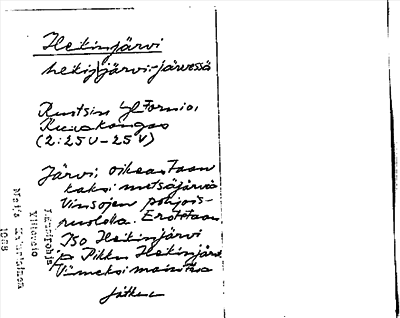 Heikinjärvi
heikij̀järvi:-järvessä
Ruotsin Yl Tornio,
Kuivakangas
(2:25U-25V)
Järvi; oikeastaan
kaksi metsäjärviä
Vinsojen pohjois-
puolella. Erotetaan
Iso Heikinjärvi
ja Pikku Heikinjärvi
Viimeksi mainittua
jatkuu
Ylitornio
Maija
1968